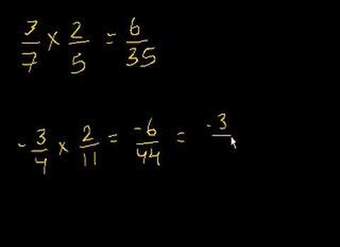 3/7 × 2/5 = 6/35
-3/4 × 2/11 = -6/44 = -3/